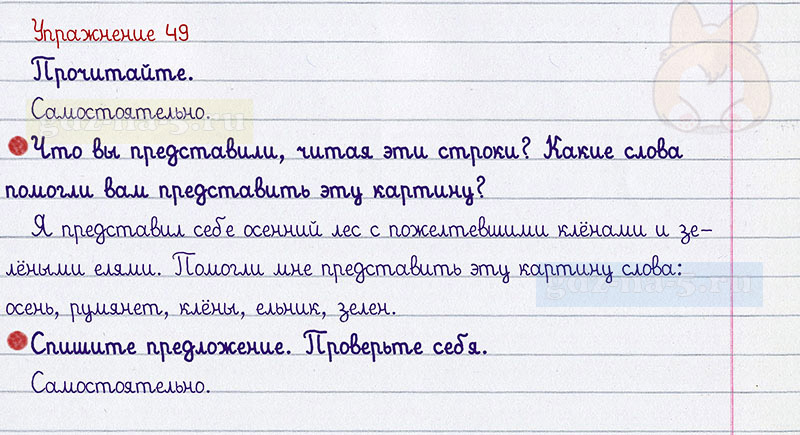 Упражнение 49
Прочитайте.
Самостоятельно.
gdz-na-5.ru
Что вы представили, читая эти строки? Какие слова
помогли вам представить эту картину?
Я представил себе осенний лес с пожелтевшими клёнами и зе-
лёными елями. Помогли мне представить эту картину слова:
gdz-na-5.ru
осень, румянет, клёны, ельник, зелен.
Спишите предложение. Проверьте себя.
Самостоятельно.